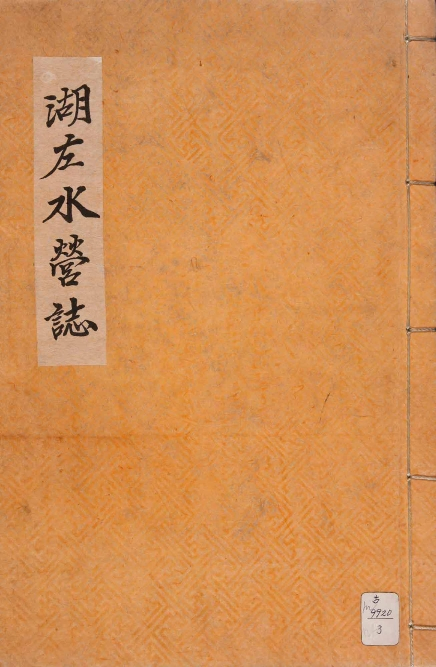 湖左水營誌
古
9920
3